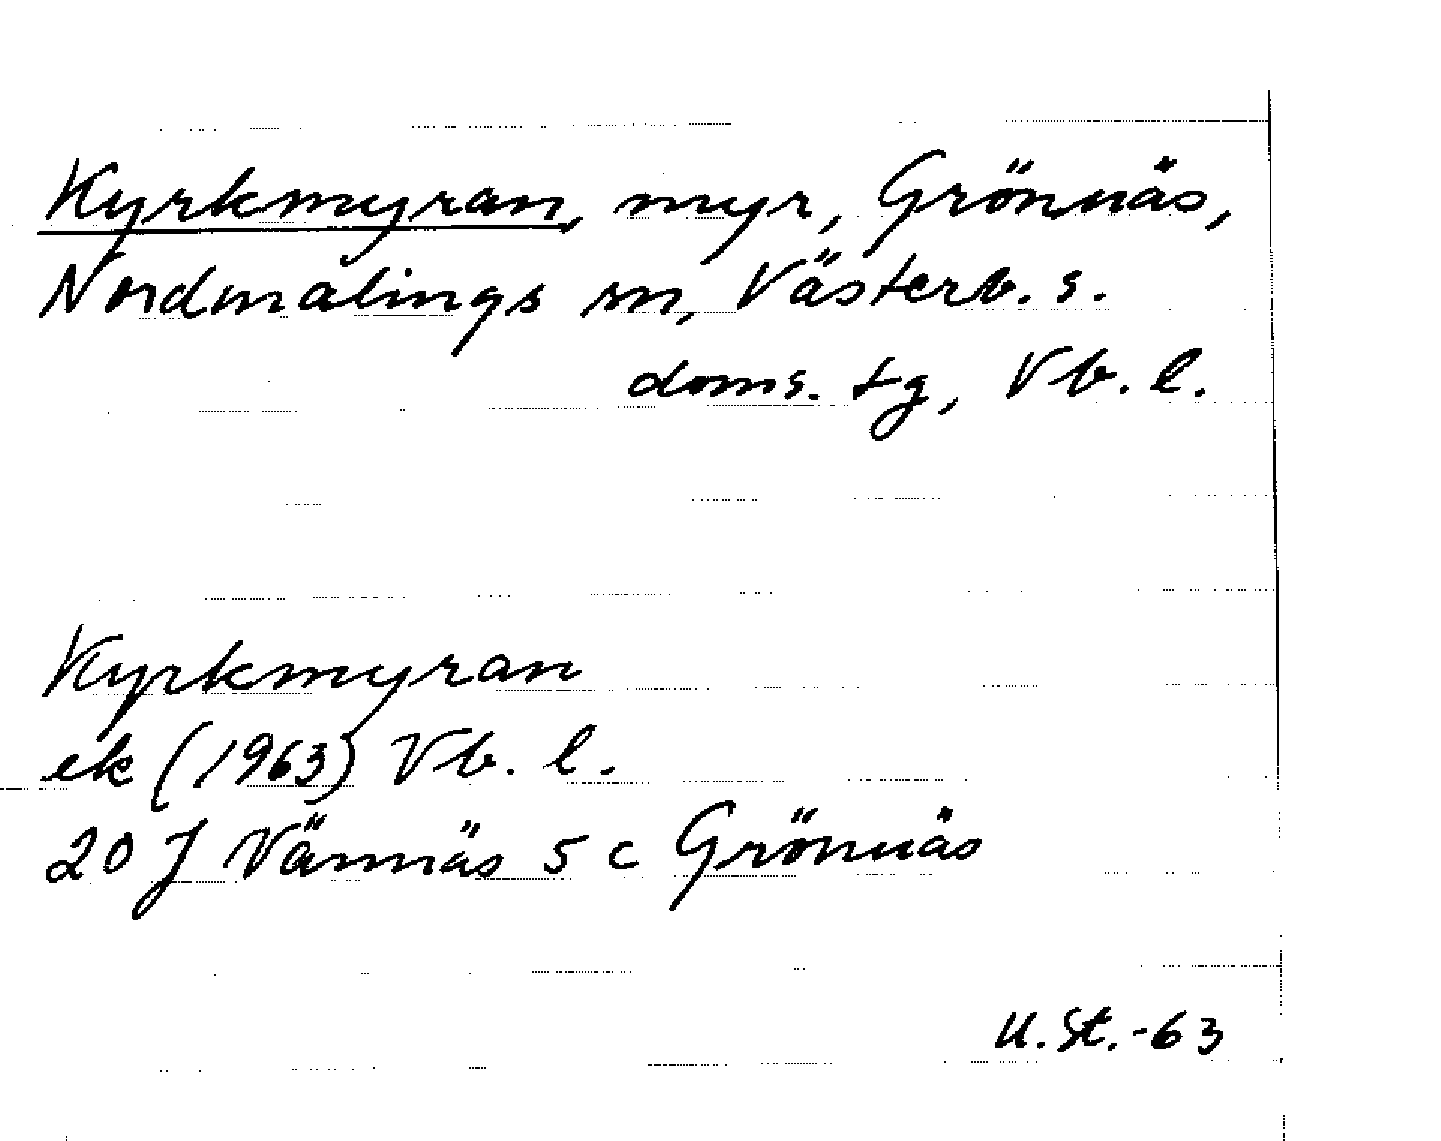 Kyrkmyran, myr, Grönnäs,
Nordmalings sn, Västerb. s.
doms. tg, Vb. l.
Kyrkmyran
ek (1963) Vb. l.
20 J Vännäs 5 c Grönnäs
U. St. -63